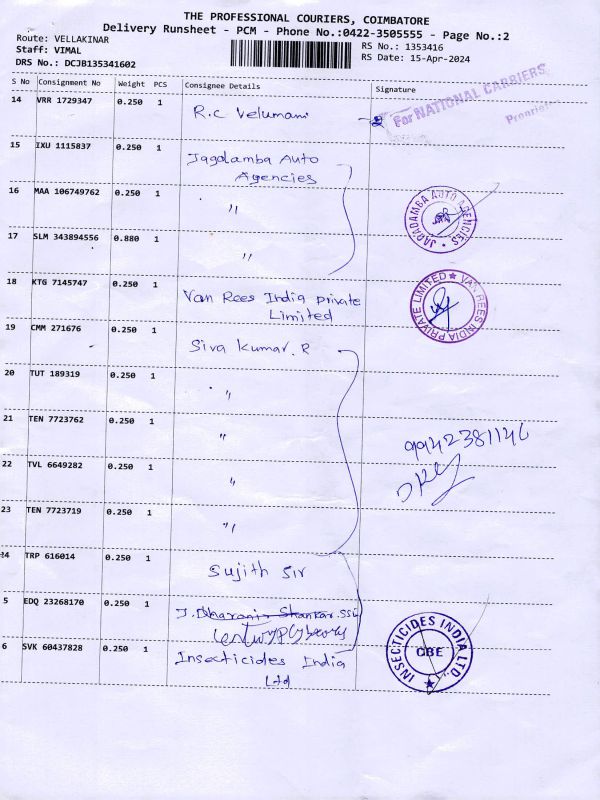 THE PROFESSIONAL COURIERS, COIMBATORE
Delivery Runsheet - PCM - Phone No.:0422-3505555 - Page No.:2
Route: VELLAKINAR
Staff: VIMAL
DRS No.: DCJB135341602
RS No.: 1353416
RS Date: 15-Apr-2024
S No Consignment No Weight PCS Consignee Details Signature
14 VRR 1729347 0.250 1 R.C Velumani
For NATIONAL CARRIERS
15 IXU 1115837 0.250 1 Jagadamba Auto
Agencies
16 MAA 106749762 0.250 1 "
JAGADAMBA AUTO AGENCIES
17 SLM 343894556 0.880 1 "
18 KTG 7145747 0.250 1 Van Rees India Private
Limited
VAN REES INDIA PRIVATE LIMITED
19 CMM 271676 0.250 1 Siva Kumar. R
20 TUT 189319 0.250 1 "
21 TEN 7723762 0.250 1 "
9942381146
22 TVL 6649282 0.250 1 "
23 TEN 7723719 0.250 1 "
24 TRP 616014 0.250 1 Sujith Sir
5 EDQ 23268170 0.250 1 J. Dharani Shankar. SSL
6 SVK 60437828 0.250 1 Insecticides India
Ltd
INSECTICIDES INDIA LTD.
CBE